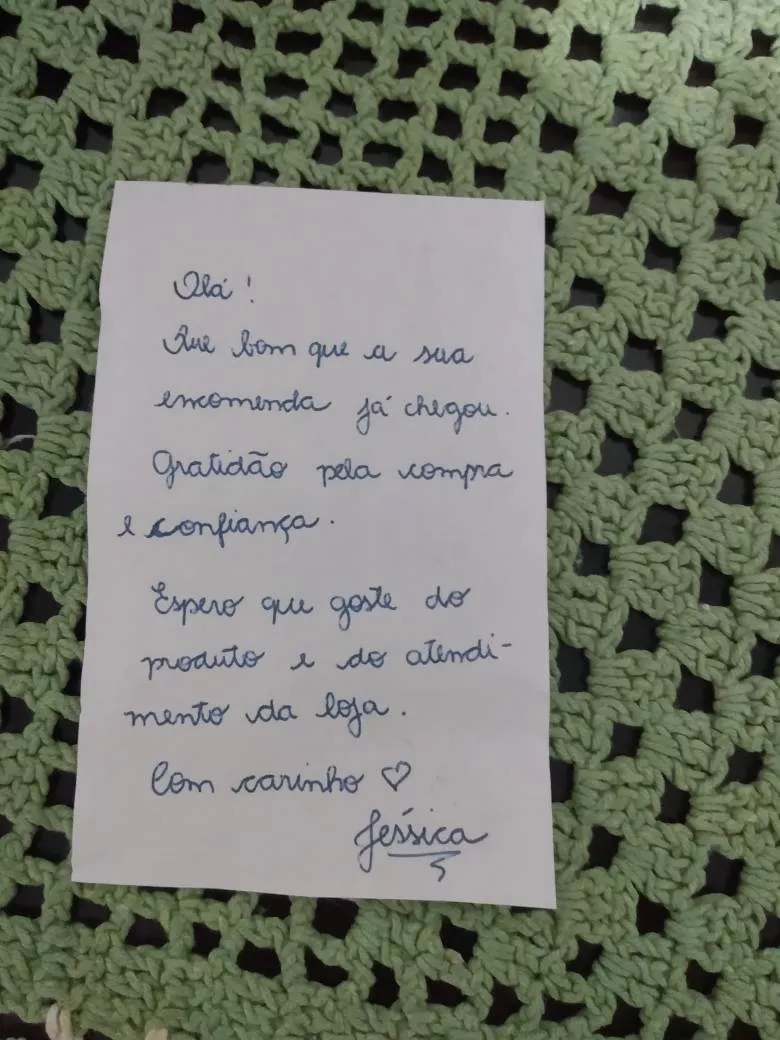 Olá!
Que bom que a sua
encomenda já chegou.
Gratidão pela compra
e confiança.
Espero que goste do
produto e do atendi-
mento da loja.
Com carinho ♡
Jéssica